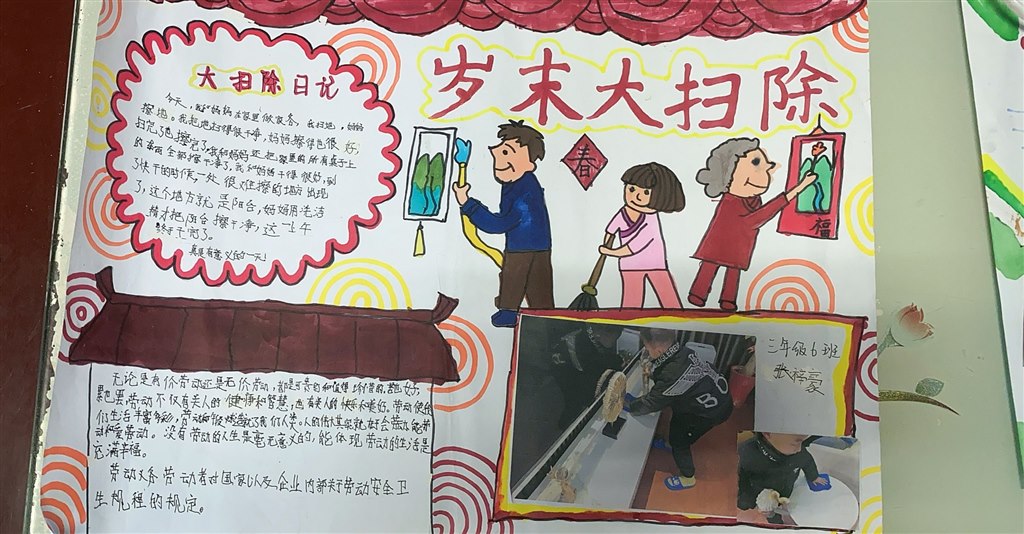 岁末大扫除
大扫除日记
今天,我和妈妈在家里做家务,我扫地,妈妈
擦地。我把地扫得很干净,妈妈擦得也很好,
扫完了也擦完了,我和妈妈还把家里的所有桌子上
的东西全部擦干净了,我和妈妈干得很好,到
了快干的时候一处很难擦的地方出现
了,这个地方就是阳台,妈妈用洗洁
精才把阳台擦干净,这一上午
终于干完了。
真是有意义的一天!
春
福
无论是有价劳动还是无价劳动,都是可贵的和值得
劳动不仅有美人的健康和智慧,也有美人的快乐和美好。劳动使
们生活丰富多彩,劳动
动和爱劳动。没有劳动的人生是毫无意义的,能体现劳动的生活是
充满幸福。
劳动义务劳动者对国家以及企业内部关于劳动安全卫
生规程的规定。
三年级6班
张梓豪